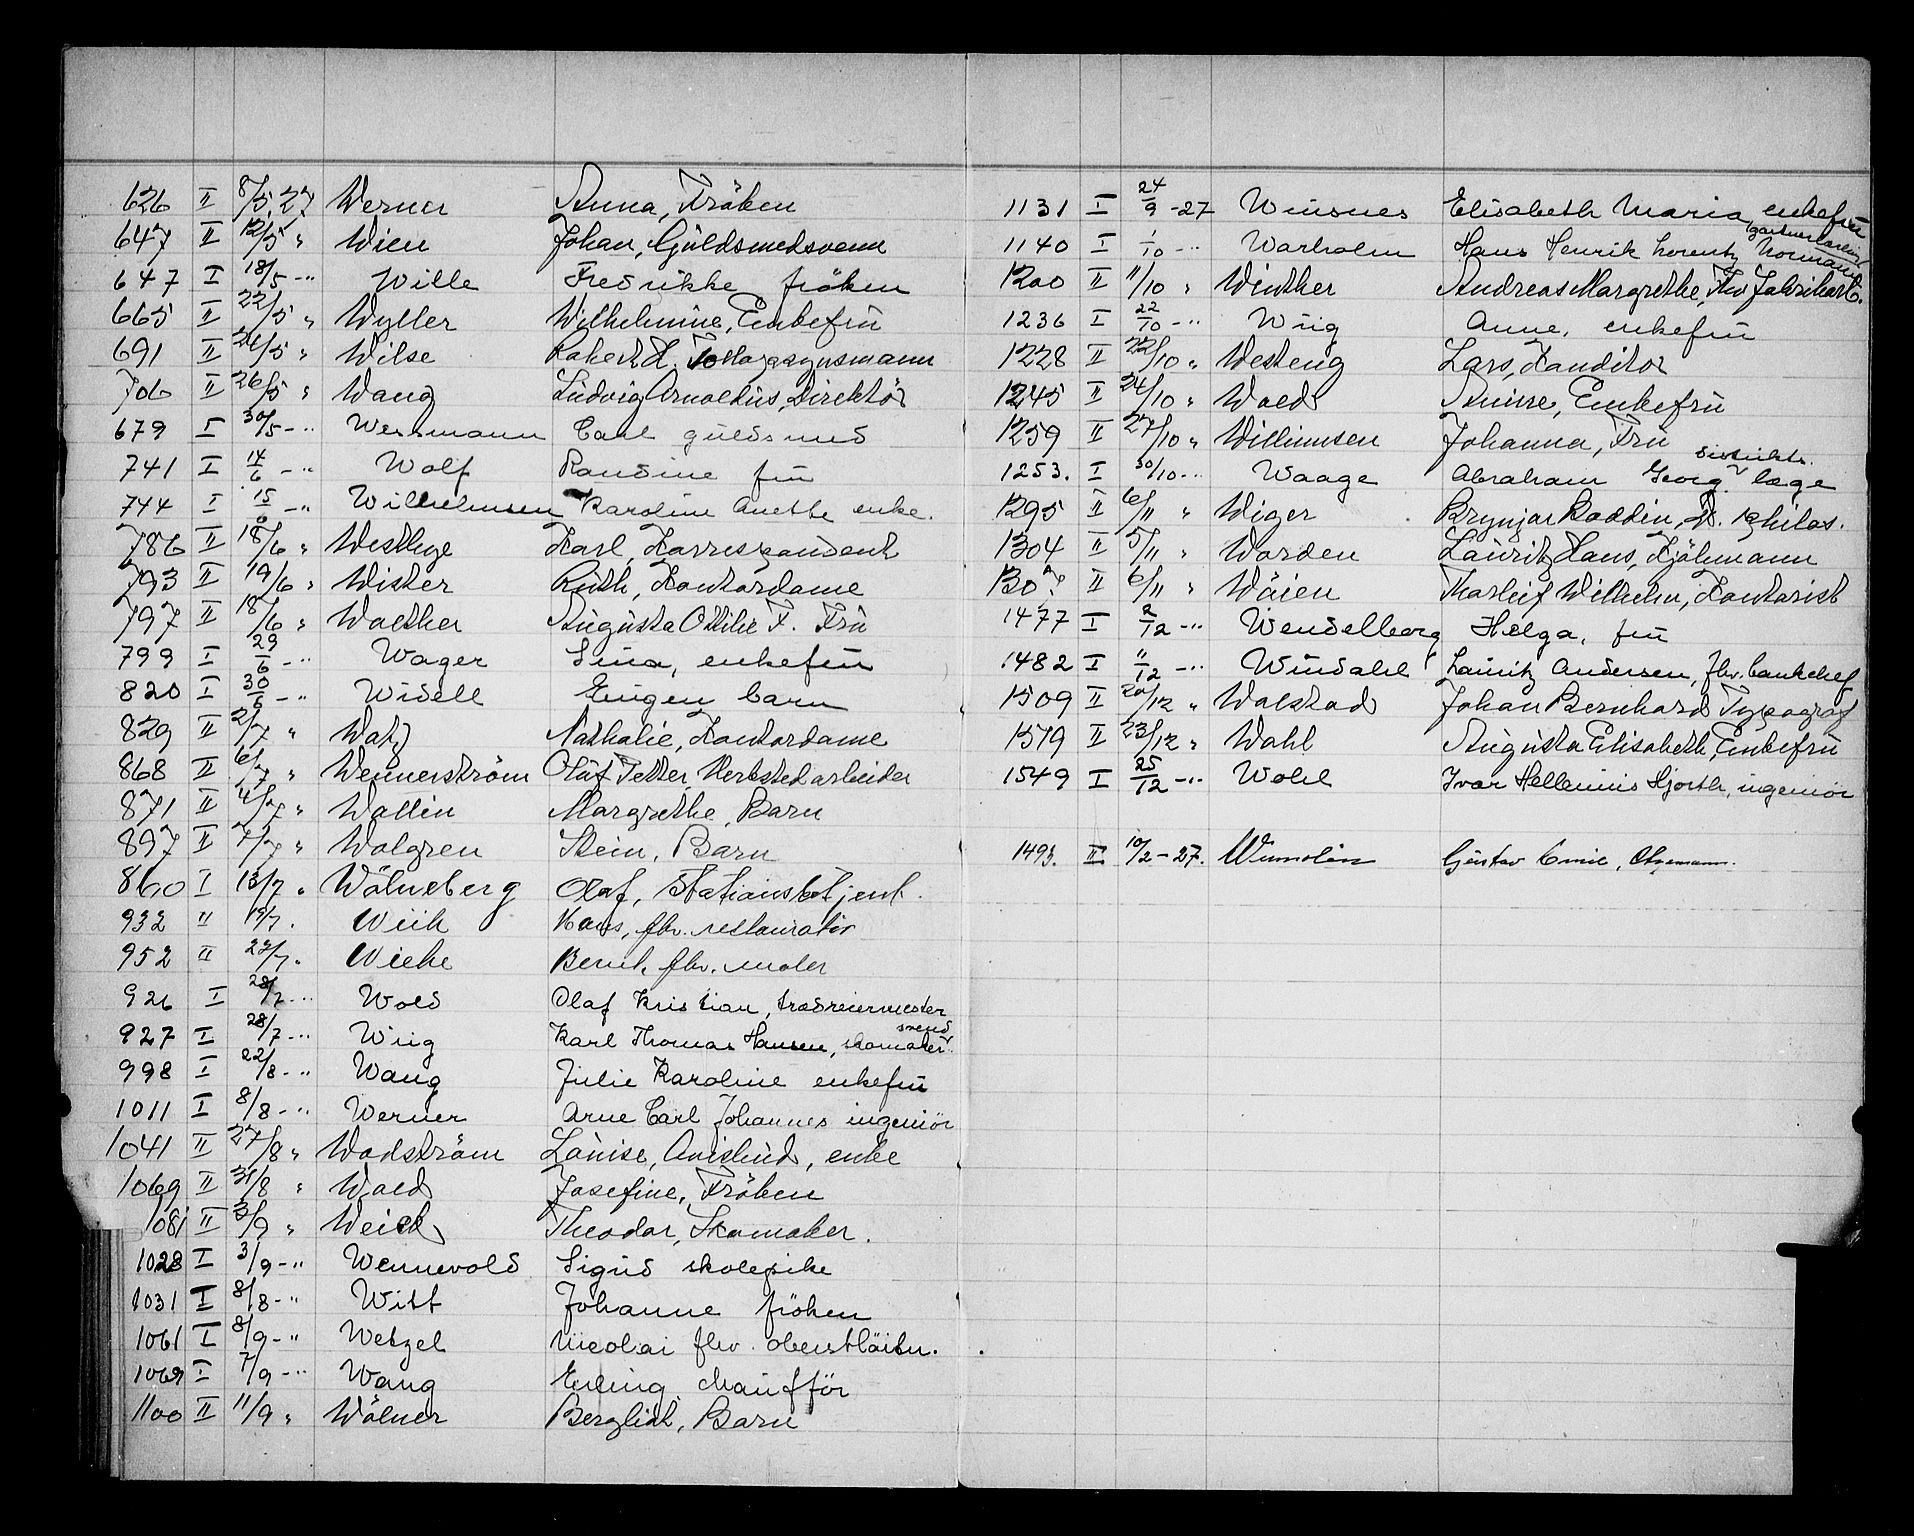 626 II 8/5.27 Werner Anna, Fröken
647 II 12/5 " Wien Johan, Guldsmedsvenn
647 I 18/5 - " Wille Fredrikke fröken
665 II 22/5 " Wyller Wilhelmine, Enkefru
691 II 24/5 " Wilse Robert
706 II 26/5 " Wang Ludvig Arnoldus, Direktör
679 I 30/5 - " Wessmann Carl guldsmed
741 I 14/6 - " Wolf Randine fru
744 I 15/6 - " Wilhelmsen Karoline Anette enke.
786 II 18/6 " Westlye Karl, Korrespondent
793 II 19/6 " Wister Ruth, Kontordame
797 II 18/6 " Walther Augusta Ottilie F. Fru
799 I 29/6 - " Wager Lina, enkefru
820 I 30/6 - " Widell Eugen barn
829 II 2/7 " Watz Nathalie, Kontordame
868 II 6/7 " Wennerström Oluf Petter, Verksted arbeider
871 II 4/7 " Wallin Margrethe, Barn
897 II 7/7 " Walgren Stein, Barn
860 I 13/7 " Wölneberg Olaf, Stationsbetjent.
932 " 19/7. Wiik Hans, fhv. restauratör
952 II 27/7. Wiche Bernh. fhv. maler
926 I 28/7 - " Wold Olaf Kristian, trædreiermester
927 I 28/7 - " Wiig Karl Thomas Hansen, skomakersvend
998 I 22/8 - " Wang Julie Karoline enkefru
1011 I 8/8 - " Werner Arne Carl Johannes ingeniør
1041 II 27/8 " Wadström Louise, enke
1069 II 31/8 " Wold Josefine, Fröken
1081 II 3/9 " Weick Theodor, Skomaker.
1028 I 3/9 - " Wennevold Sigrid skolepike
1031 I 8/8 - " Witt Johanne fröken
1061 I 8/9 - " Wetzel Nicolai fhv. oberstlöitn.
1069 I 7/9 - " Wang Erling chaufför
1100 II 11/9 " Wölner Bergliot, Barn
1131 I 24/9 - 27 Winsnes Elisabeth Maria enkefru
1140 I 1/10 - " Warholm Hans Henrik Lorentz Normann
1200 II 11/10 " Winther Andreas Margrethe, Fhv
1236 I 22/10 - " Wiig Anne, enkefru
1228 II 22/10 " Westeng Lars, Konditor
1245 II 24/10 " Wold Enkefru
1259 II 27/10 " Willumsen Johanna, Fru
1253. I 30/10 - " Waage Abraham Georg distrikts læge
1295 II 6/11 " Wiger Brynjar Boddin, st. philos.
1304 II 5/11 " Worden Lauritz Hans, Kjöbmann
1307. II 6/11 " Wöien Thorleif Wilhelm, Kontorist
1477 I 2/12 - " Wendelborg Helga, fru
1482 I 11/12 - " Windahl Lauritz Andersen, fhv. bankchef
1509 II 20/12 " Walstad Johan Bernhard Typograf
1519 II 23/12 " Wahl Augusta Elisabeth, Enkefru
1549 I 25/12 - " Wohl Ivar Hjorth, ingeniør
1495. II 10/2 - 27. Gustav Emil,